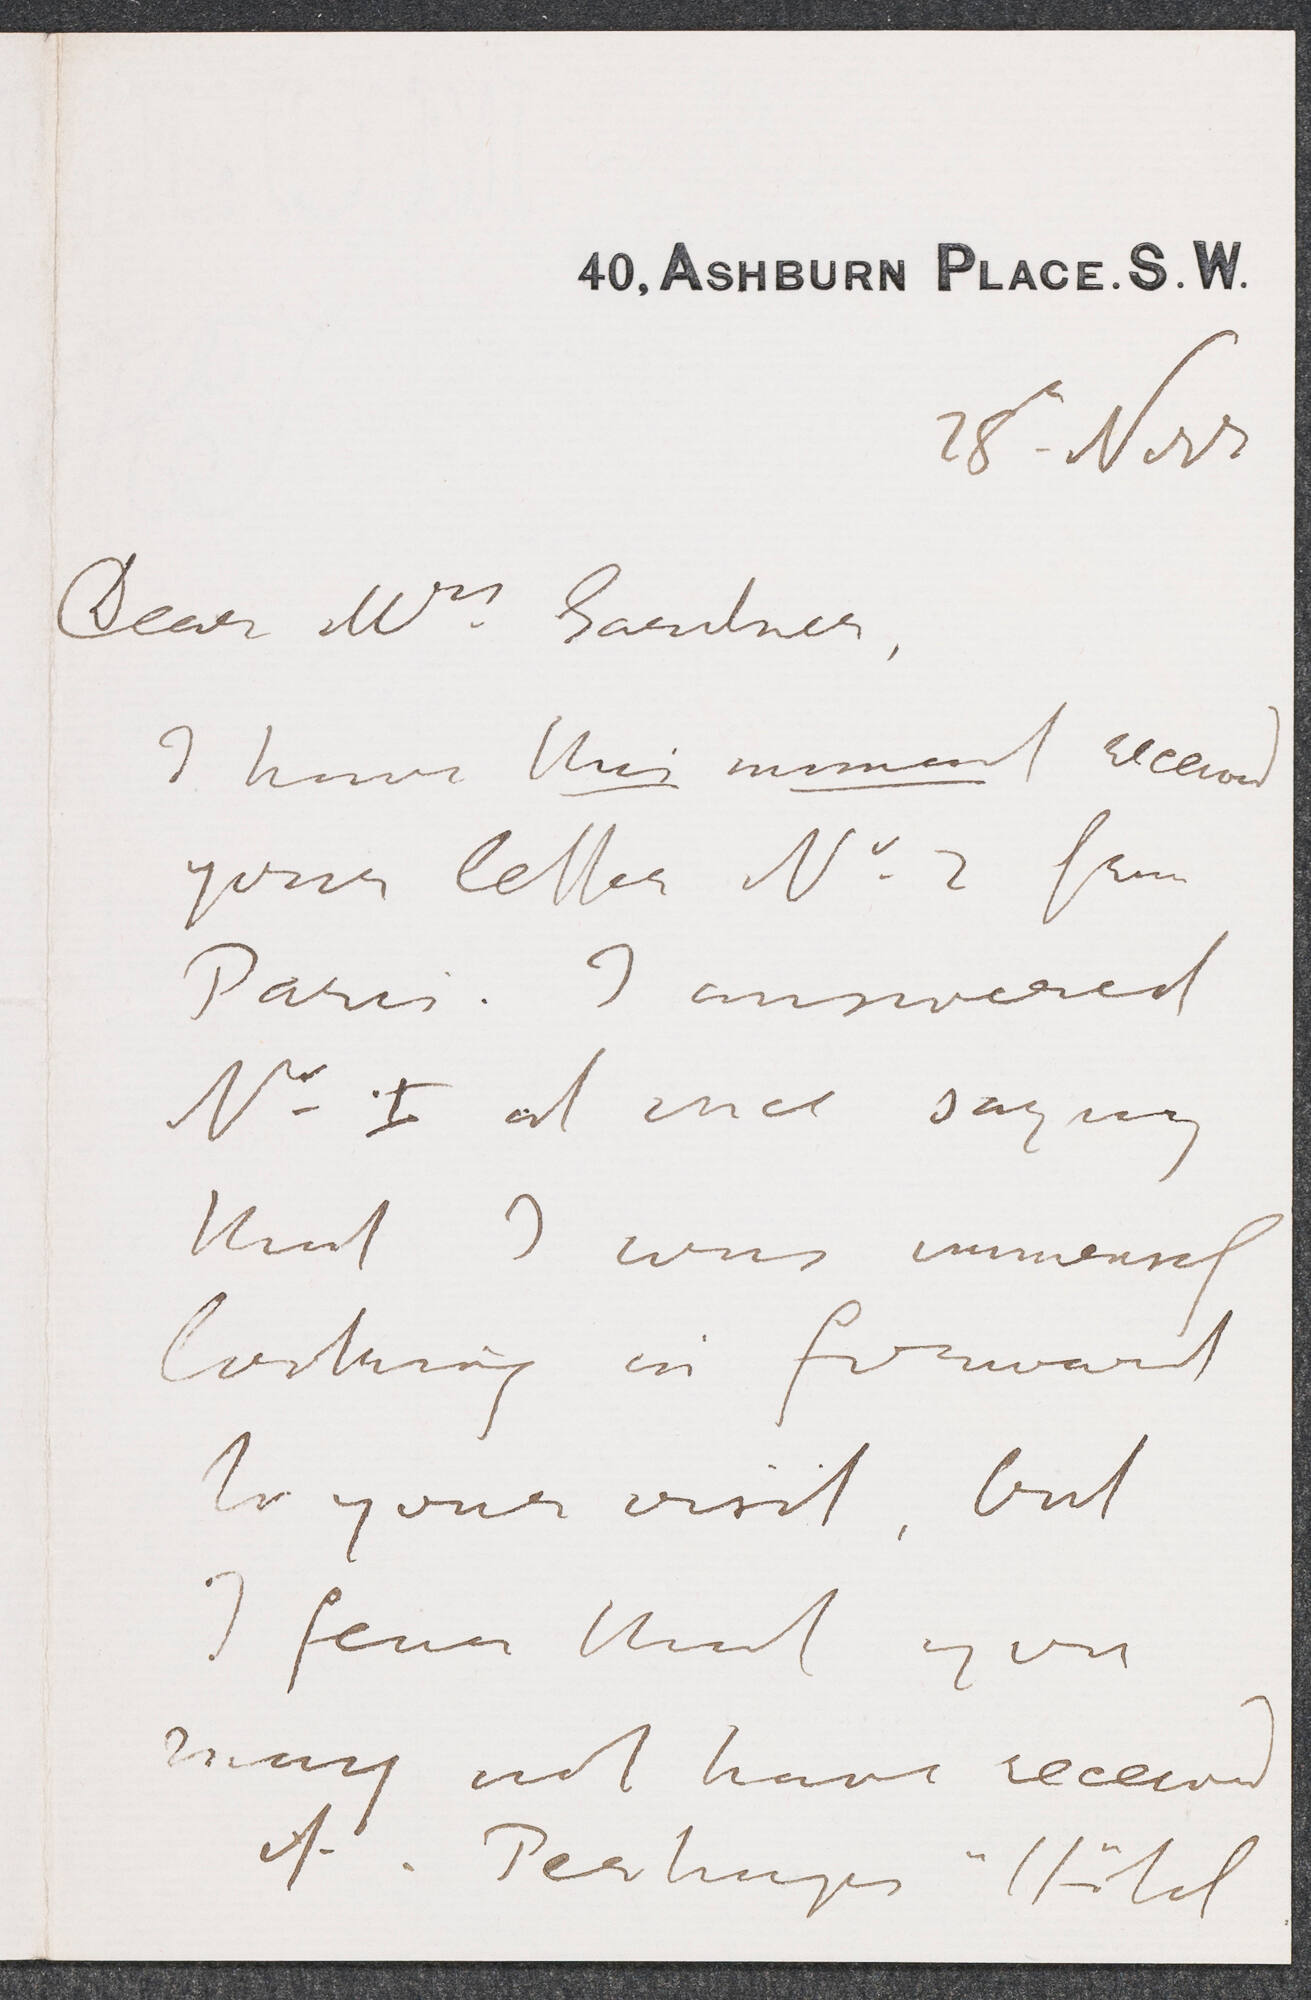 40, ASHBURN PLACE. S. W.
28th Novr
Dear Mrs. Gardner,
I have this moment received
your letter No. 2 from
Paris. I answered
No. I at once saying
that I was immensely
looking in forward
to your visit, but
I fear that you
may not have received
it. Perhaps "Hôtel